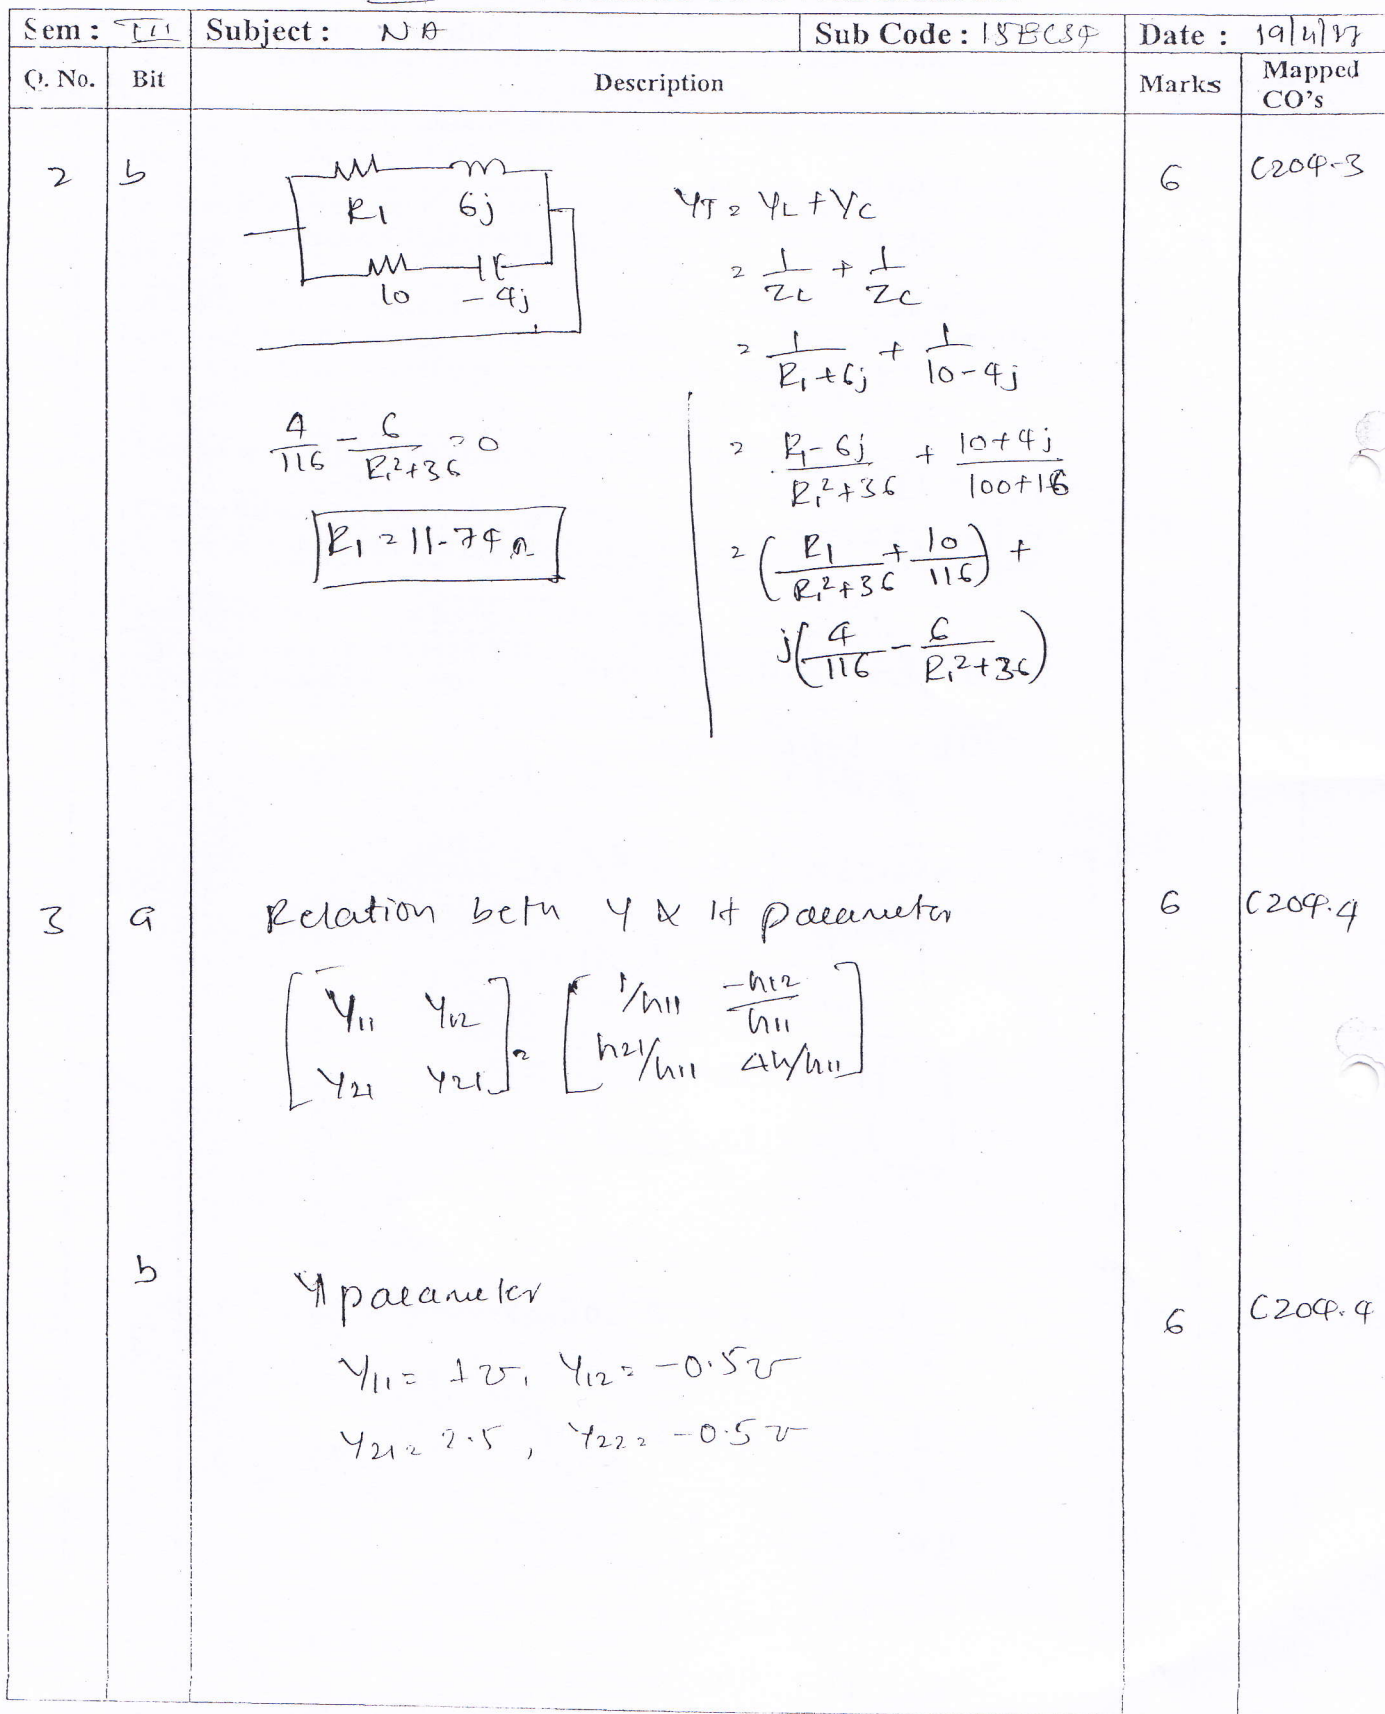 Sem : III Subject : NA Sub Code : 15EC34 Date : 19/4/17
Q. No. Bit Description Marks Mapped CO's
2 b 6 C204-3
R1 6j
10 -4j
YT = YL + YC
= 1/ZL + 1/ZC
= 1/(R1+6j) + 1/(10-4j)
= (R1-6j)/(R1²+36) + (10+4j)/(100+16)
= (R1/(R1²+36) + 10/116) +
j(4/116 - 6/(R1²+36))
4/116 - 6/(R1²+36) = 0
R1 = 11.74 Ω
3 a Relation betn Y & H parameter 6 C204.4
[Y11 Y12] = [1/h11 -h12/h11]
[Y21 Y21] [h21/h11 Δh/h11]
b Y parameter 6 C204.4
Y11 = 1℧, Y12 = -0.5℧
Y21 = 2.5, Y22 = -0.5℧